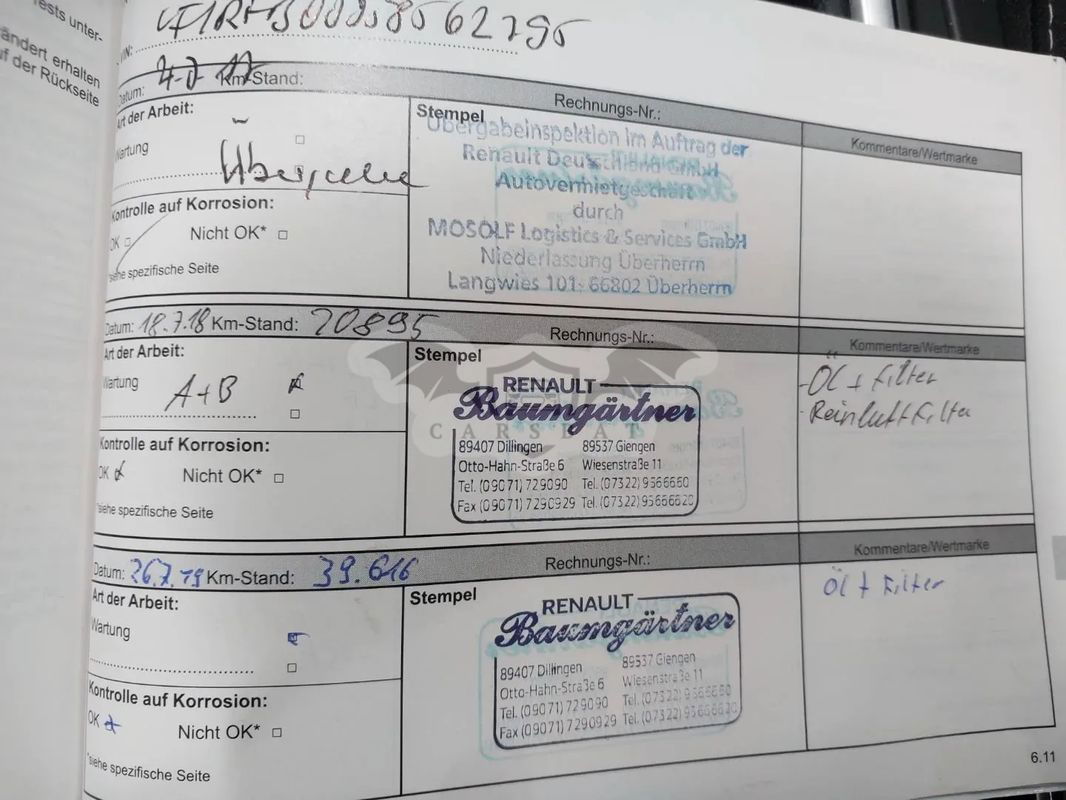 ests unter-
ändert erhalten
f der Rückseite
VIN:
Datum: Km-Stand: Rechnungs-Nr.:
Art der Arbeit:
Wartung
Kontrolle auf Korrosion:
OK Nicht OK*
*siehe spezifische Seite
Stempel
Übergabeinspektion im Auftrag der
Renault Deutschland GmbH
Autovermietgeschäft
durch
MOSOLF Logistics & Services GmbH
Niederlassung Überherrn
Langwies 101· 66802 Überherrn
Kommentare/Wertmarke
Datum: 18.7.18 Km-Stand: 20895 Rechnungs-Nr.:
Art der Arbeit:
Wartung
A+B
Kontrolle auf Korrosion:
OK Nicht OK*
*siehe spezifische Seite
Stempel
RENAULT
Baumgärtner
89407 Dillingen 89537 Giengen
Otto-Hahn-Straße 6 Wiesenstraße 11
Tel. (09071) 729090 Tel. (07322) 9566660
Fax (09071) 7290929 Tel. (07322) 95666620
Kommentare/Wertmarke
- Öl + Filter
- Reinluftfilter
CARSDAT
Datum: 26.7.19 Km-Stand: 39.616 Rechnungs-Nr.:
Art der Arbeit:
Wartung
Kontrolle auf Korrosion:
OK Nicht OK*
*siehe spezifische Seite
Stempel
RENAULT
Baumgärtner
89407 Dillingen 89537 Giengen
Otto-Hahn-Straße 6 Wiesenstraße 11
Tel. (09071) 729090 Tel. (07322) 9566660
Fax (09071) 7290929 Tel. (07322) 95666620
Kommentare/Wertmarke
Öl + Filter
6.11